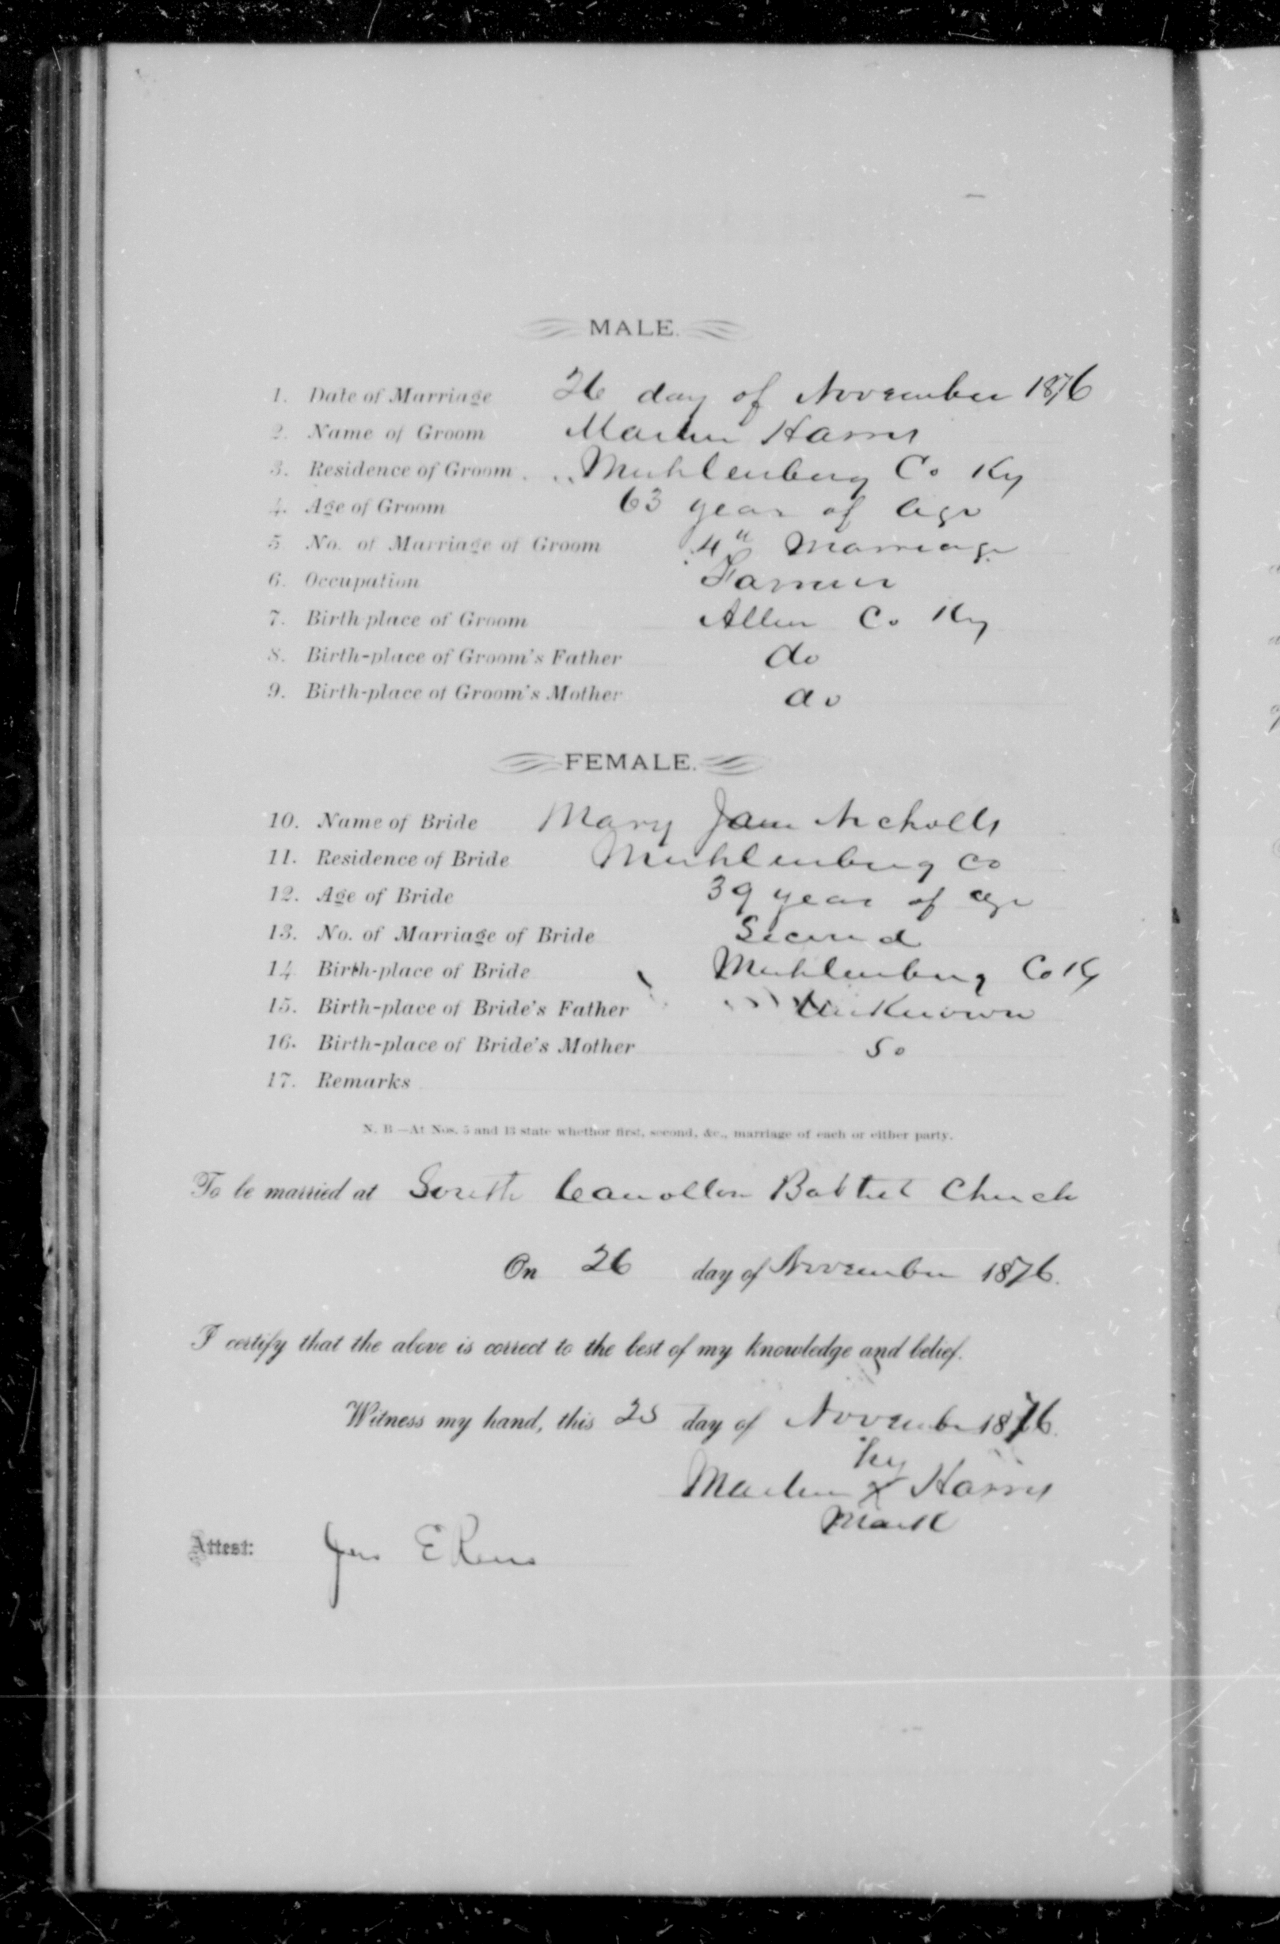 MALE.
1. Date of Marriage 26 day of November 1876
2. Name of Groom Martin Harris
3. Residence of Groom Muhlenberg Co Ky
4. Age of Groom 63 year of Age
5 No. of Marriage of Groom 4" Marriage
6. Occupation Farmer
7. Birth place of Groom Allen Co Ky
8. Birth-place of Groom's Father do
9. Birth-place of Groom's Mother do
FEMALE.
10. Name of Bride Mary Jane Nicholls
11. Residence of Bride Muhlenberg Co
12. Age of Bride 39 year of age
13. No. of Marriage of Bride Second
14 Birth-place of Bride Muhlenberg Co Ky
15. Birth-place of Bride's Father Unknown
16. Birth-place of Bride's Mother So
17. Remarks
N. B—At Nos. 5 and 13 state whether first, second, &c., marriage of each or either party.
To be married at South Carrollton Babtist Church
On 26 day of November 1876.
I certify that the above is correct to the best of my knowledge and belief.
Witness my hand, this 25 day of November 1876.
his
Martin X Harris
Mark
Attest: Jas E